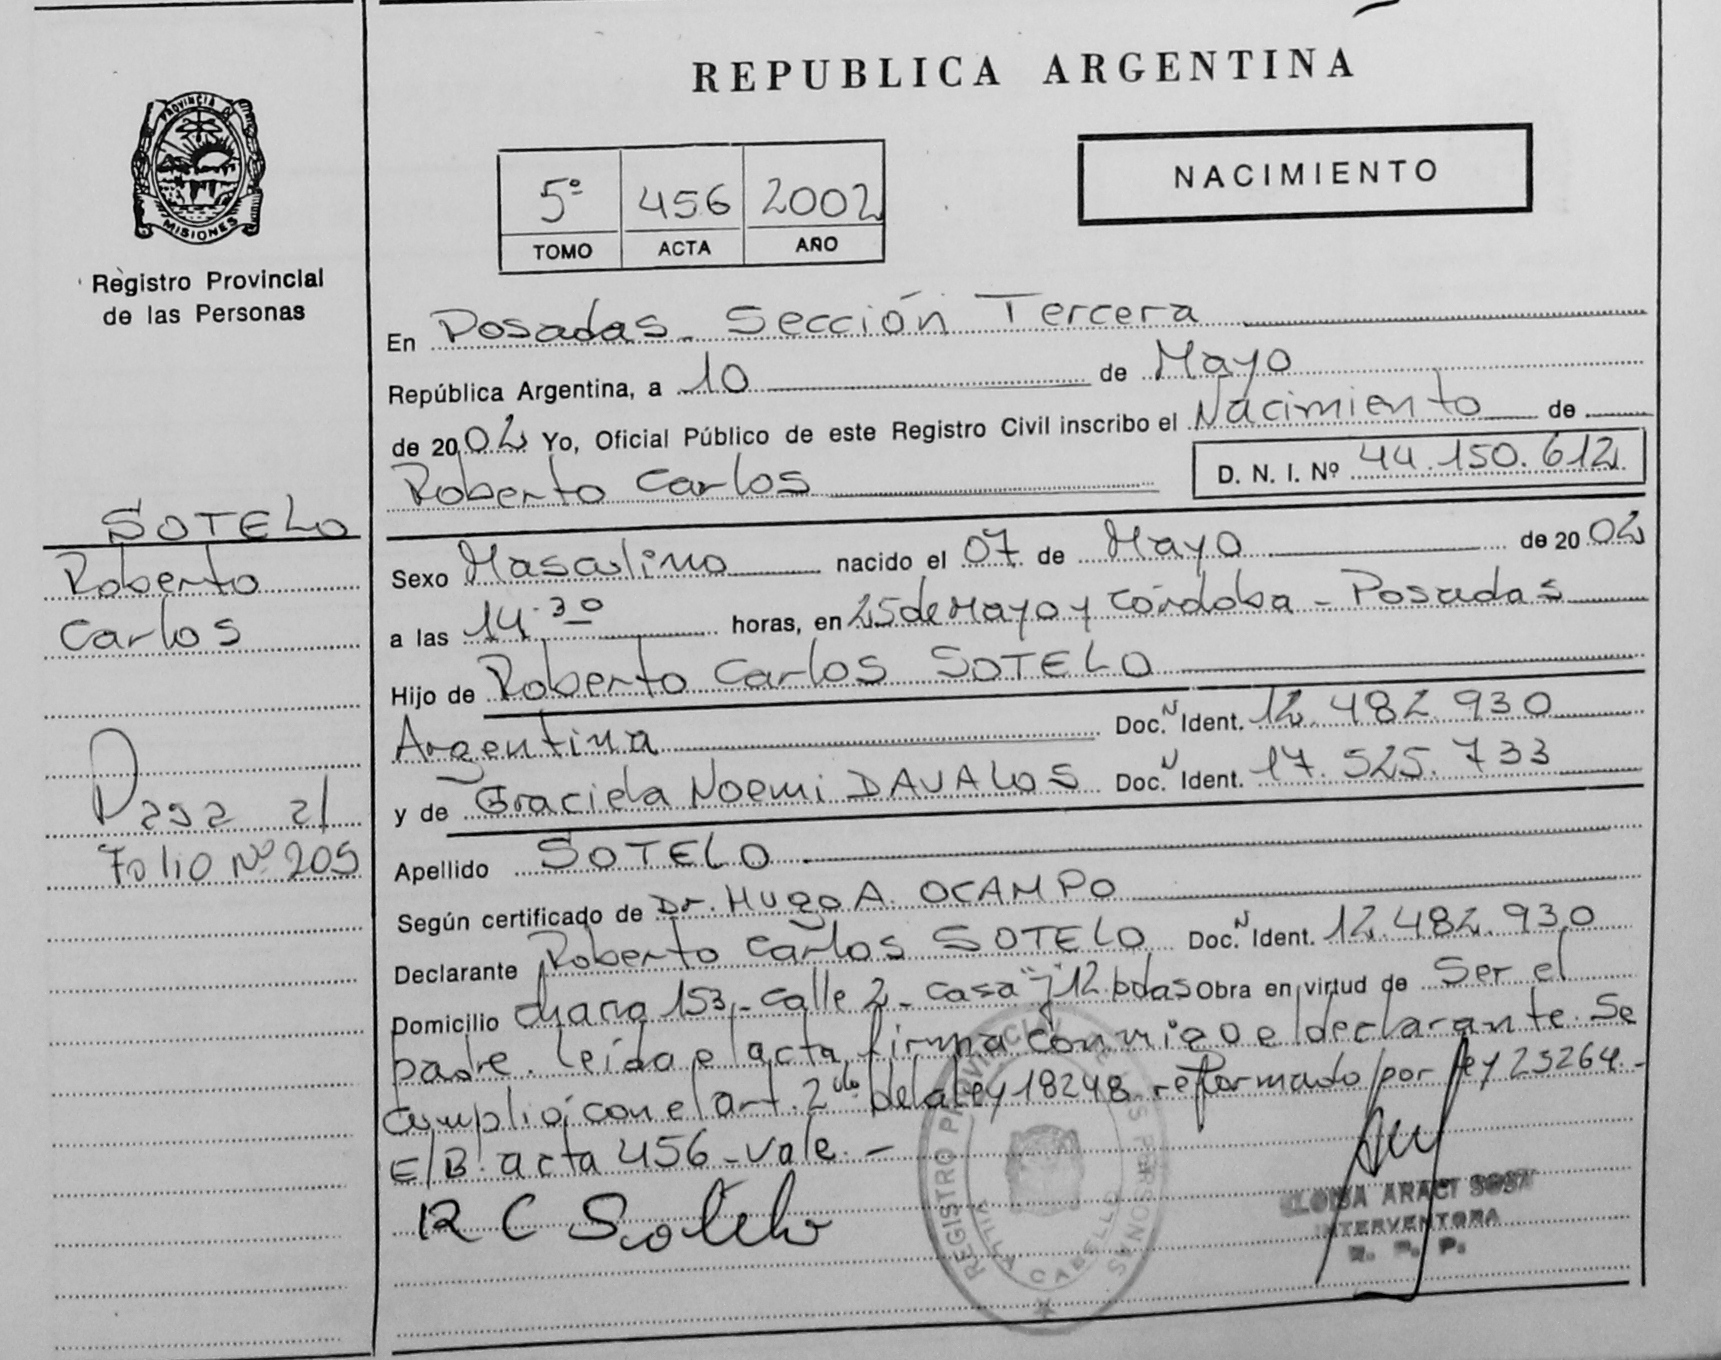 REPUBLICA ARGENTINA
PROVINCIA DE
MISIONES
Registro Provincial
de las Personas
5º 456 2002
TOMO ACTA AÑO
NACIMIENTO
En Posadas - Sección Tercera
República Argentina, a 10 de Mayo
de 2002 Yo, Oficial Público de este Registro Civil inscribo el Nacimiento de
Roberto Carlos
D. N. I. Nº 44.150.612
SOTELO
Roberto
Carlos
Pasa al
Folio Nº 205
Sexo Masculino nacido el 07 de Mayo de 2002
a las 14.30 horas, en 25 de Mayo y Córdoba - Posadas
Hijo de Roberto Carlos SOTELO
Argentina Doc. N Ident. 12.482.930
y de Graciela Noemi DAVALOS Doc. N Ident. 17.525.733
Apellido SOTELO
Según certificado de Dr. HUGO A. OCAMPO
Declarante Roberto Carlos SOTELO Doc. N Ident. 12.482.930
Domicilio chacra 153 - calle 2 - casa "j" 12. bdas Obra en virtud de Ser el
padre. leída el acta, firma conmigo el declarante. Se
cumplió con el art. 2do de la ley 18248 reformado por ley 25264.-
E/B: acta 456 - vale. -
R C Sotelo
REGISTRO PROVINCIAL DE LAS PERSONAS
CABELLO
ARACI SOSA
INTERVENTORA
R. P. P.